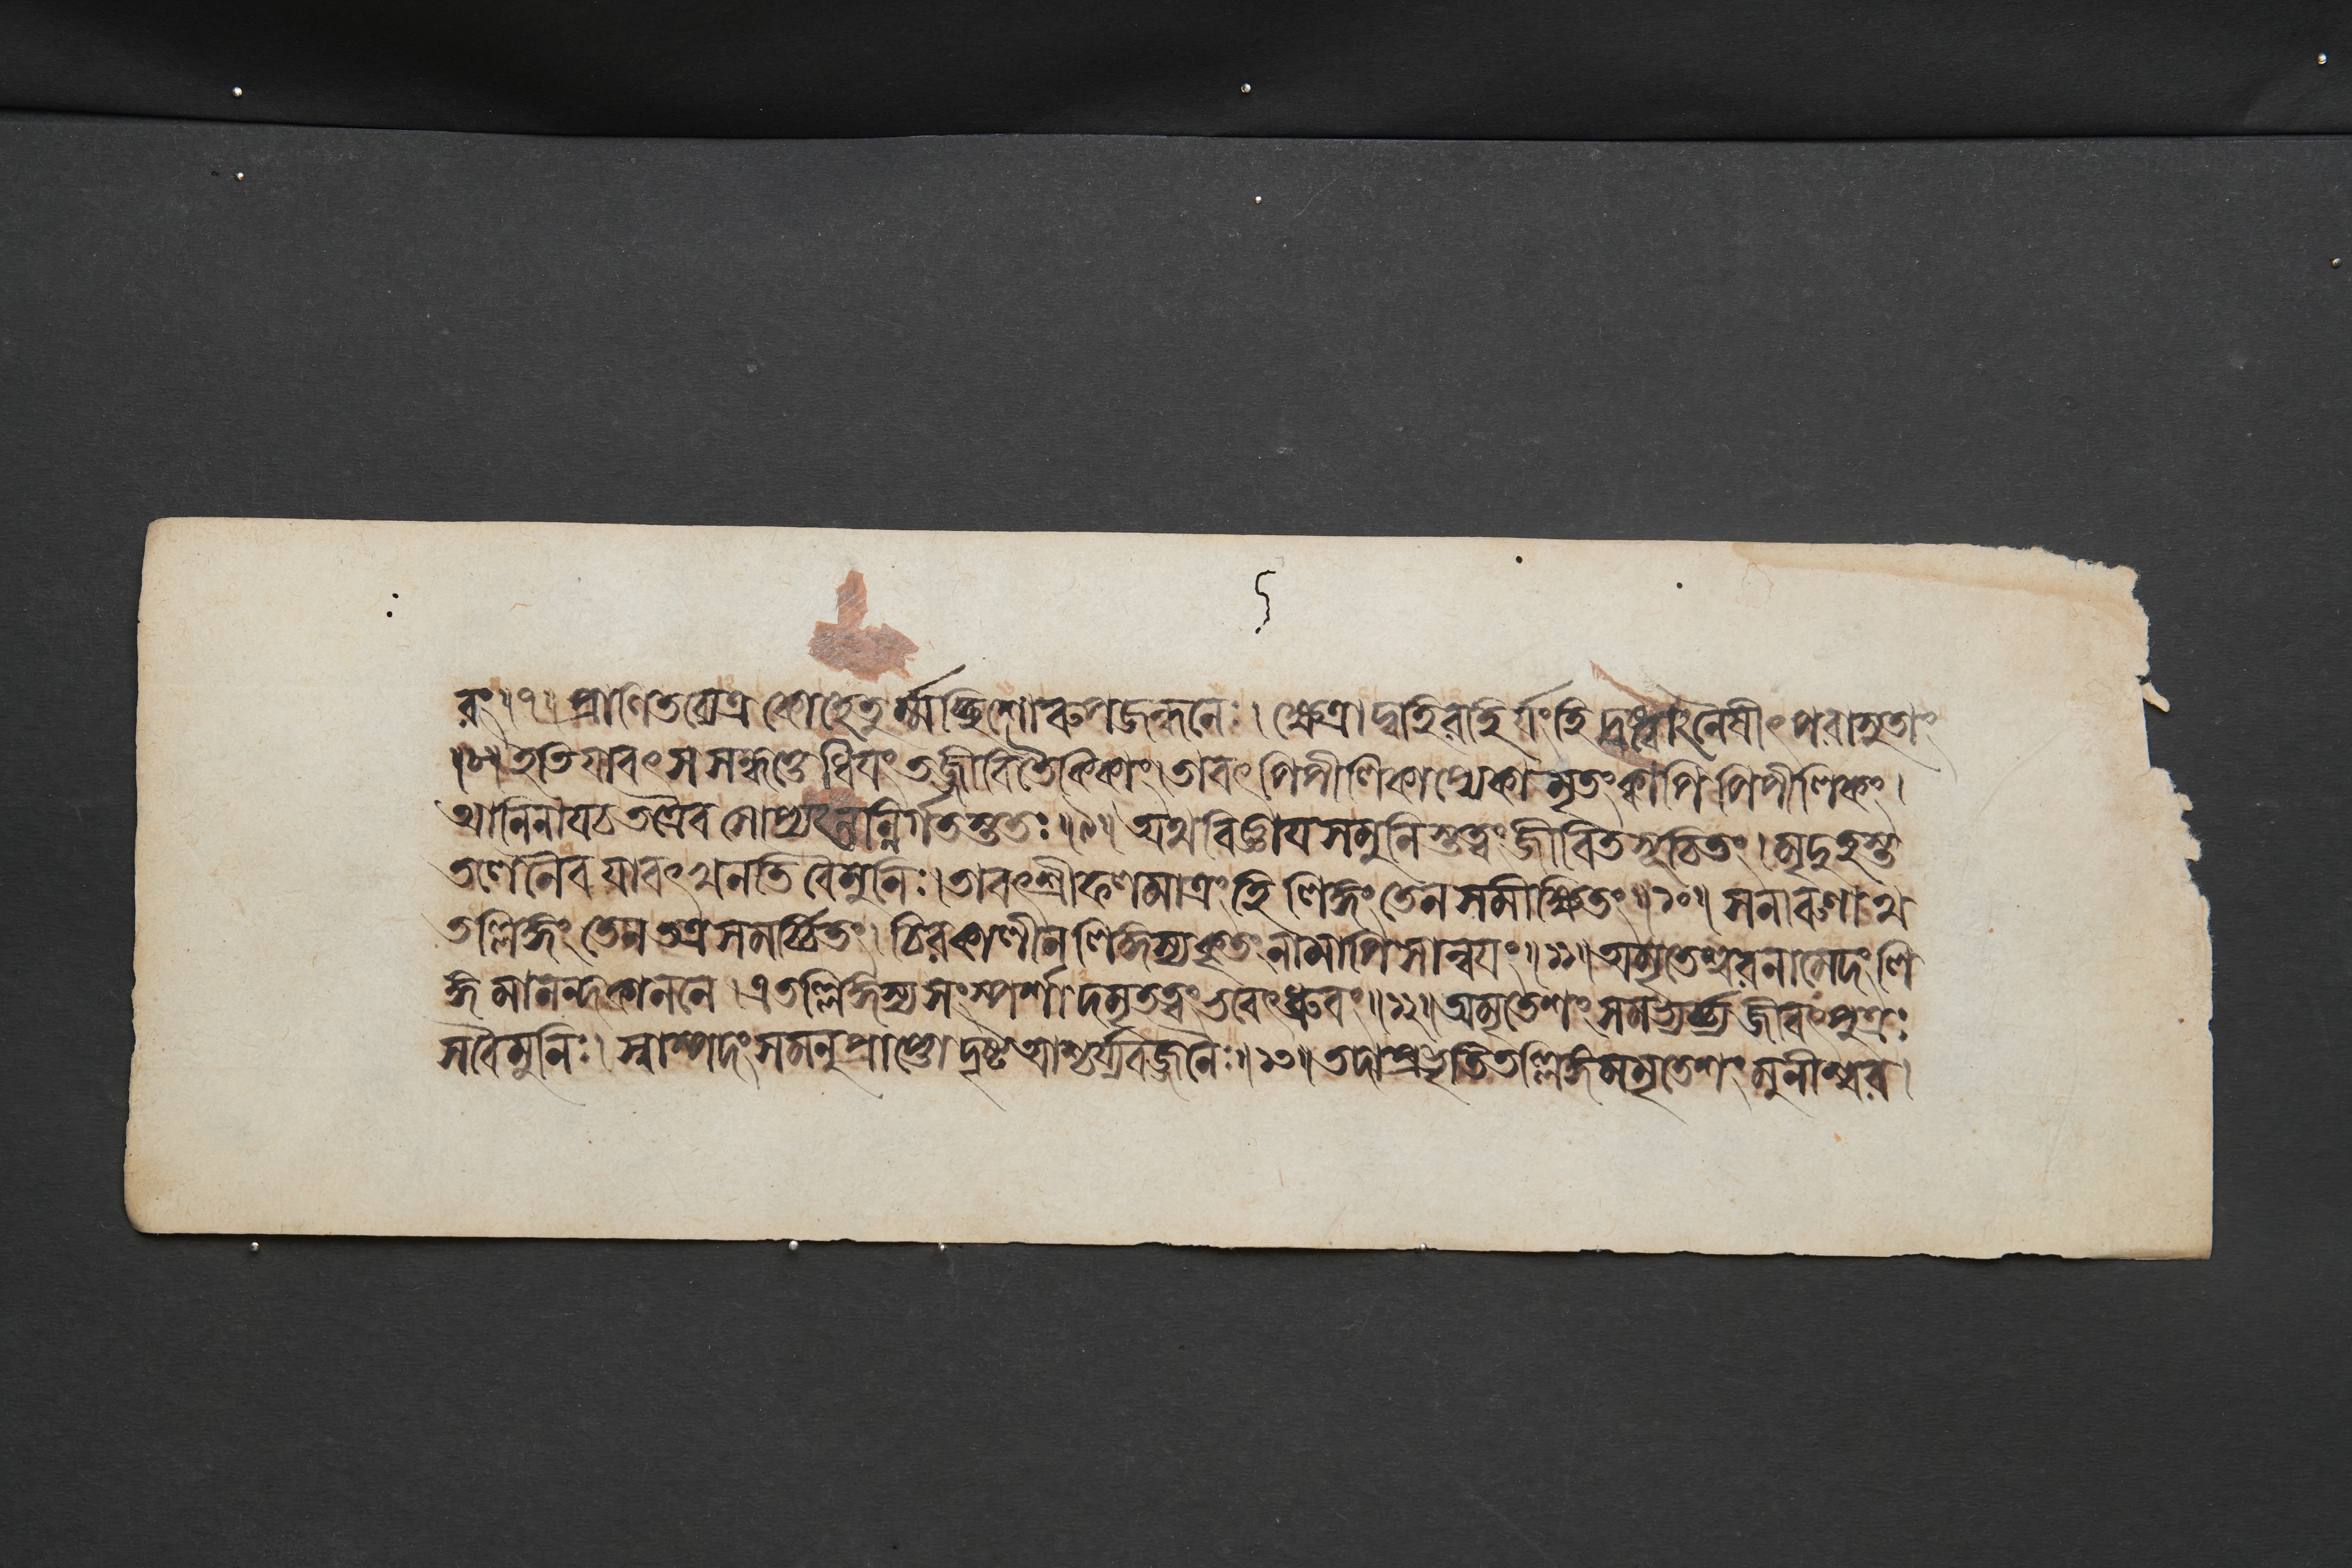 রং॥৭॥ প্রাণিতব্যেত্র কোহেতুর্ম্মচ্ছিশোরুপজঙ্ঘনেঃ। ক্ষেত্রাদ্বহিরহির্যংহি দষ্ট্বানৈষীৎ পরাসুতাং
॥৮॥ ইতি যাবৎ স সন্ধত্তে ধিযং তজ্জীবিতৈকিকাং। তাবৎ পিপীলিকাপ্যেকা মৃতং ক্বাপি পিপীলিকং।
আনিনাযচ তত্রৈব সোপ্যনন্নির্গতস্ততঃ॥৯॥ অথ বিজ্ঞায সমুনিস্তত্ত্বং জীবিতসূচিতং। মৃদুহস্ত
তলেনৈব যাবৎ খনতি বৈমুনিঃ। তাবৎ শ্রীফলমাত্রং হি লিঙ্গং তেন সমীক্ষিতং॥১০॥ সনারুণাথ
তল্লিঙ্গং তেন তত্র সমর্চ্চিতং। চিরকালীন লিঙ্গস্য কৃতং নামাপি সান্বযং॥১১॥ অমৃতেশ্বরনামেদং লি
ঙ্গমানন্দকাননে। এতল্লিঙ্গস্য সংস্পর্শাদমৃতত্বং ভবেৎ ধ্রুবং॥১২॥ অমৃতেশং সমভ্যর্চ্চ্য জীবৎপুত্রঃ
সবৈমুনিঃ। স্বাস্পদং সমনুপ্রাপ্তো দৃষ্ট আশ্চর্য্যবজ্জনৈঃ॥১৩॥ তদাপ্রভৃতি তল্লিঙ্গমমৃতেশং মুনীশ্বর।